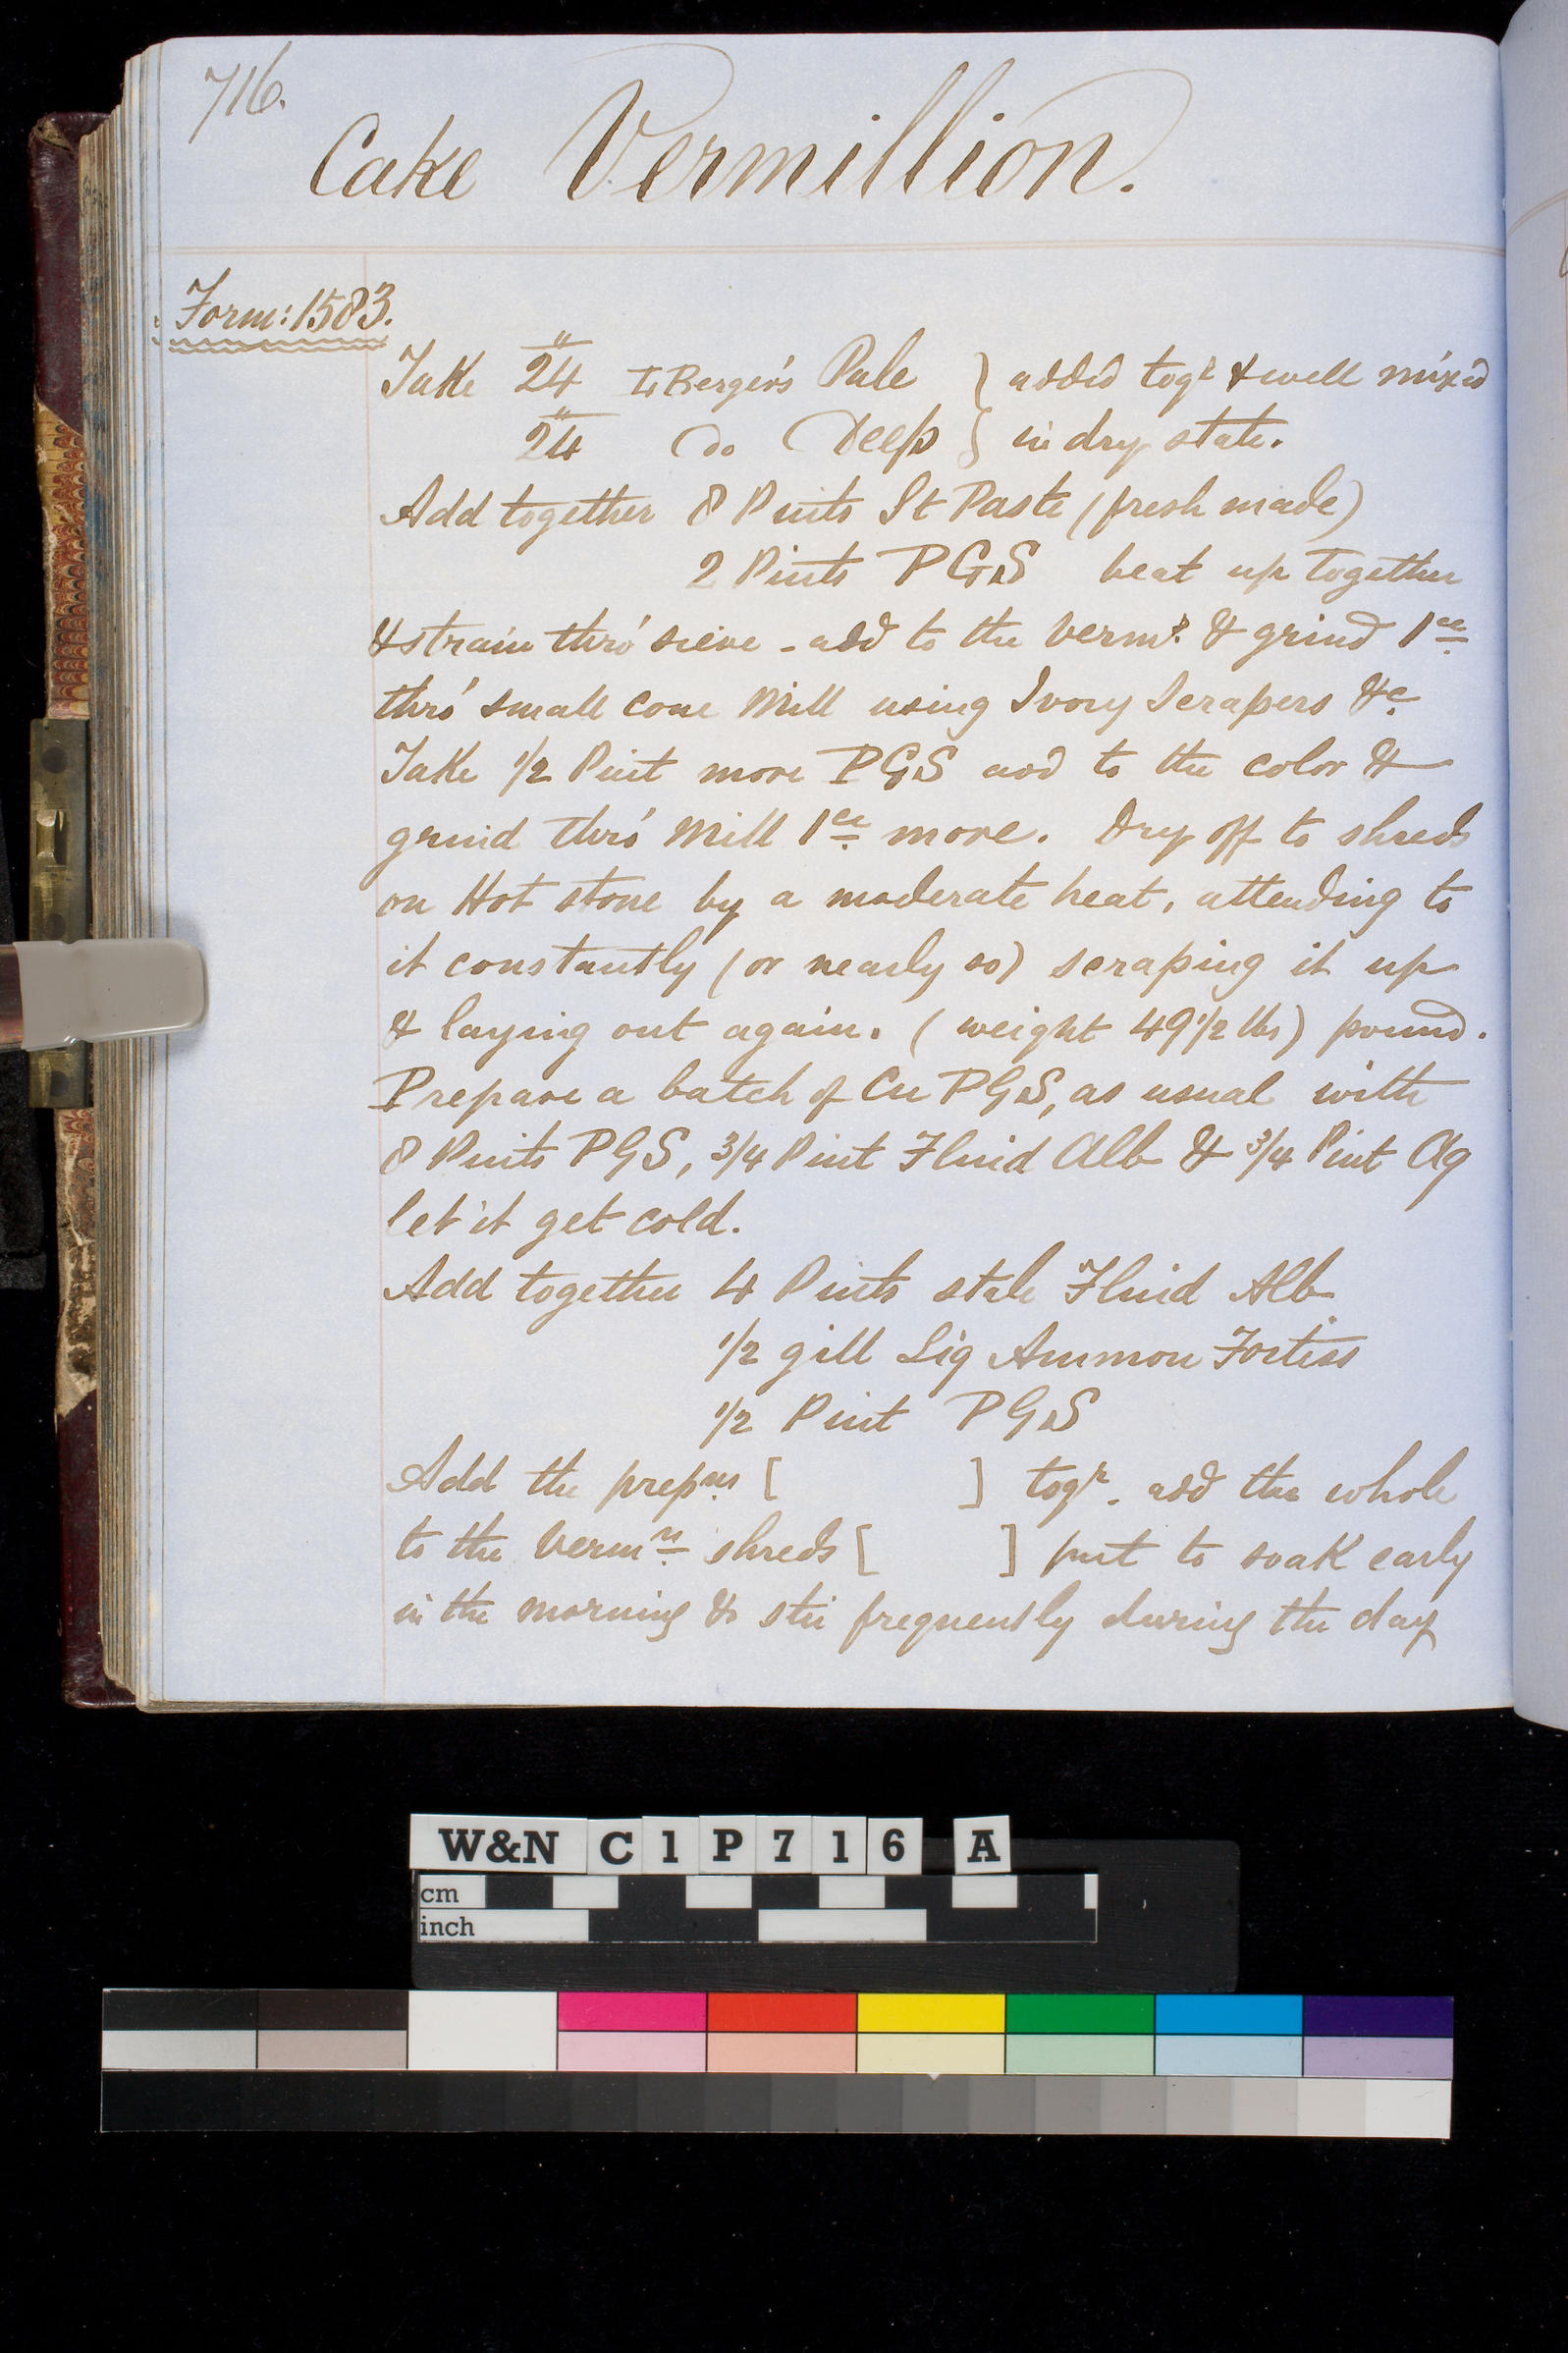 716.
Cake Vermillion.
Form: 1583.
Take 24 lb Berger's Pale } added togr & well mixed
24 Do Deep } in dry state.
Add together 8 Pints St Paste (fresh made)
2 Pints PGS beat up together
& strain thro' sieve - add to the Vermn. & grind 1ce
thro' small cone Mill using Ivory Scrapers &c.
Take 1/2 Pint more PGS and to the color &
grind thro' Mill 1ce more. Dry off to shreds
on Hot stone by a moderate heat, attending to
it constantly (or nearly so) scraping it up
& laying out again. (weight 49 1/2 lbs) pound.
Prepare a batch of Cu PGS, as usual with
8 Pints PGS, 3/4 Pint Fluid Alb & 3/4 Pint Aq
let it get cold.
Add together 4 Pints stale Fluid Alb
1/2 gill Liq Ammon Fortiss
1/2 Pint PGS
Add the prepns [ ] togr. add the whole
to the Vermn shreds [ ] put to soak early
in the morning & stir frequently during the day
W&N C1P716 A
cm
inch